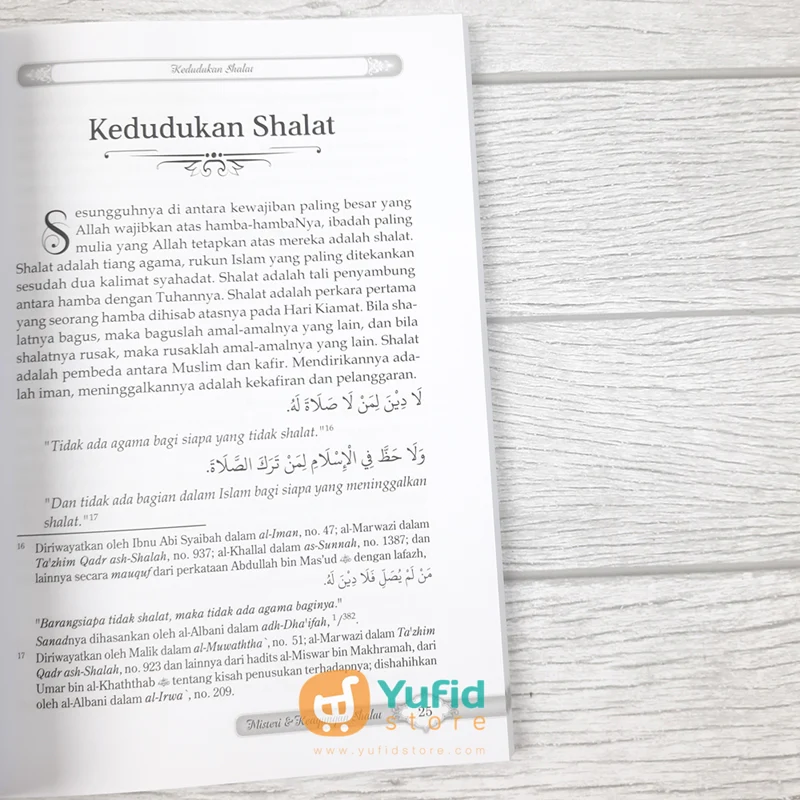 Kedudukan Shalat
Kedudukan Shalat
Sesungguhnya di antara kewajiban paling besar yang
Allah wajibkan atas hamba-hambaNya, ibadah paling
mulia yang Allah tetapkan atas mereka adalah shalat.
Shalat adalah tiang agama, rukun Islam yang paling ditekankan
sesudah dua kalimat syahadat. Shalat adalah tali penyambung
antara hamba dengan Tuhannya. Shalat adalah perkara pertama
yang seorang hamba dihisab atasnya pada Hari Kiamat. Bila sha-
latnya bagus, maka baguslah amal-amalnya yang lain, dan bila
shalatnya rusak, maka rusaklah amal-amalnya yang lain. Shalat
adalah pembeda antara Muslim dan kafir. Mendirikannya ada-
lah iman, meninggalkannya adalah kekafiran dan pelanggaran.
لَا دِيْنَ لِمَنْ لَا صَلَاةَ لَهُ.
"Tidak ada agama bagi siapa yang tidak shalat."16
وَلَا حَظَّ فِي الْإِسْلَامِ لِمَنْ تَرَكَ الصَّلَاةَ.
"Dan tidak ada bagian dalam Islam bagi siapa yang meninggalkan
shalat."17
16 Diriwayatkan oleh Ibnu Abi Syaibah dalam al-Iman, no. 47; al-Marwazi dalam
Ta'zhim Qadr ash-Shalah, no. 937; al-Khallal dalam as-Sunnah, no. 1387; dan
lainnya secara mauquf dari perkataan Abdullah bin Mas'ud ﷺ dengan lafazh,
مَنْ لَمْ يُصَلِّ فَلَا دِيْنَ لَهُ.
"Barangsiapa tidak shalat, maka tidak ada agama baginya."
Sanadnya dihasankan oleh al-Albani dalam adh-Dha'ifah, 1/382.
17 Diriwayatkan oleh Malik dalam al-Muwaththa`, no. 51; al-Marwazi dalam Ta'zhim
Qadr ash-Shalah, no. 923 dan lainnya dari hadits al-Miswar bin Makhramah, dari
Umar bin al-Khaththab tentang kisah penusukan terhadapnya; dishahihkan
oleh al-Albani dalam al-Irwa`, no. 209.
Misteri & Keagungan Shalat 25
Yufid
store
www.yufidstore.com